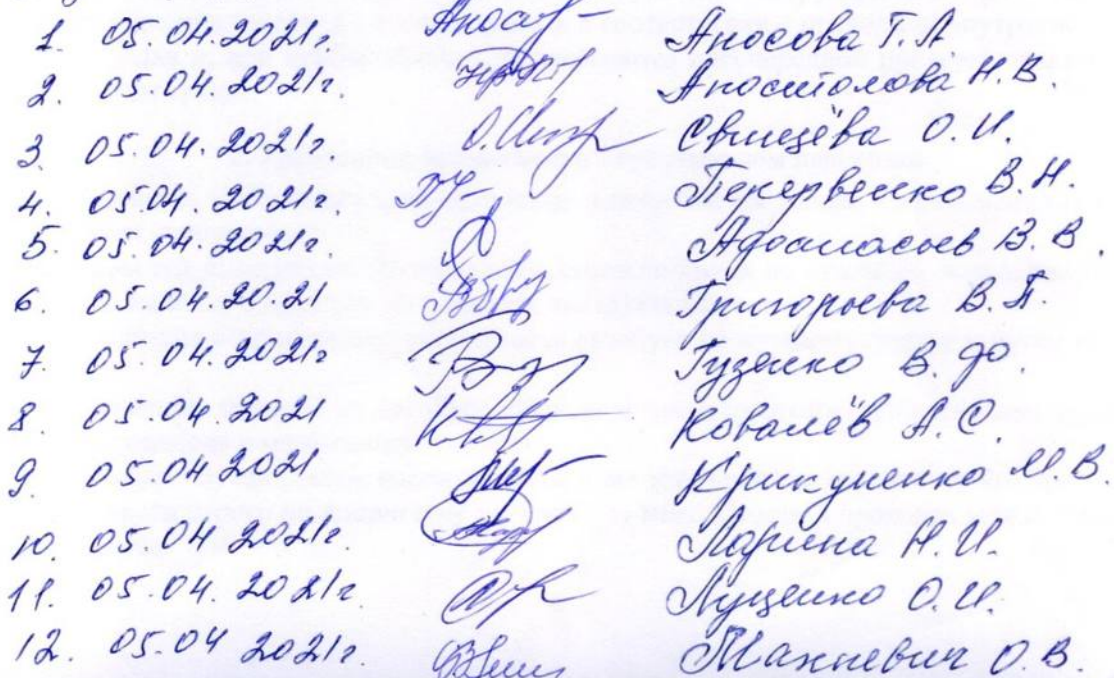 1. 05.04.2021г. Аносова Т.Л.
2. 05.04.2021г. Апостолова Н.В.
3. 05.04.2021г. Свищёва О.И.
4. 05.04.2021г. Пекервенко В.Н.
5. 05.04.2021г В.В.
6. 05.04.2021 Григорьева В.П.
7. 05.04.2021г Гузенко В.Ю.
8. 05.04.2021 Ковалёв А.С.
9. 05.04.2021 Крикуненко М.В.
10. 05.04.2021г. Ларина Н.И.
11. 05.04.2021г Луценко О.И.
12. 05.04 2021г. Махневич О.В.